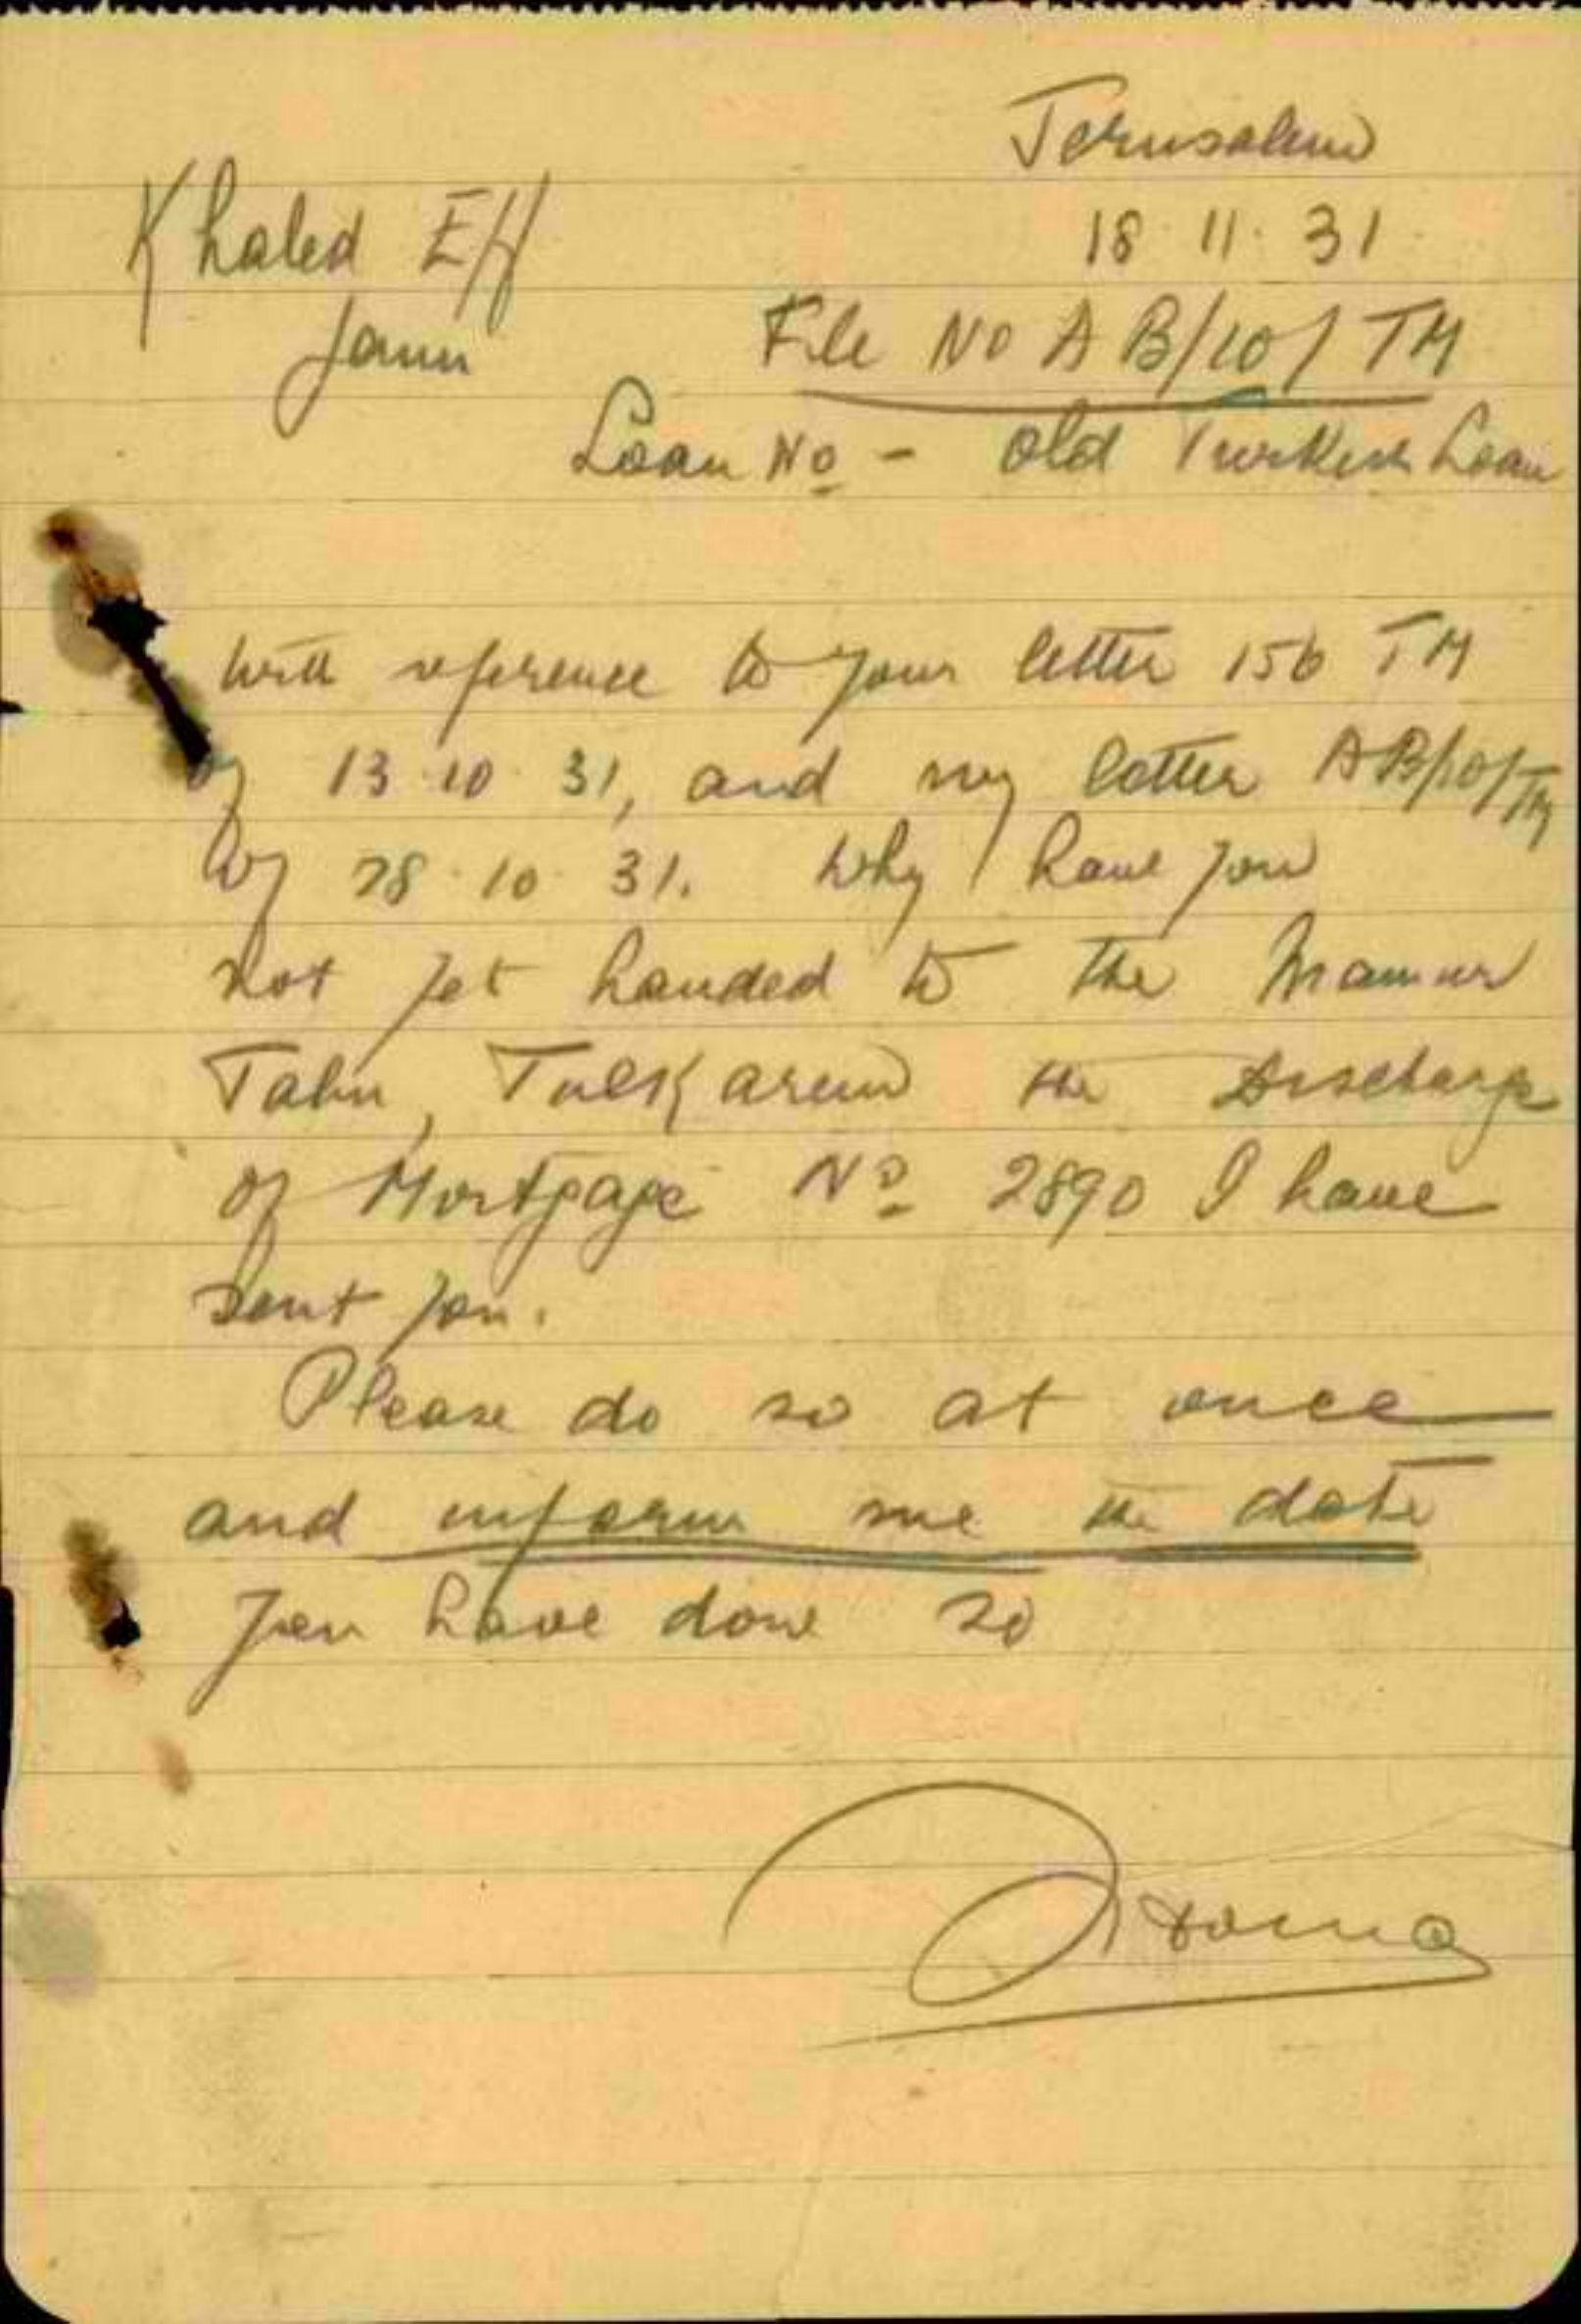 Jerusalem
Khaled Eff
18.11.31
Jenin
File No AB/10/TM
Loan No - Old Turkish Loan
With reference to your letter 156 TM
of 13.10.31, and my letter AB/10/TM
of 28.10.31. Why have you
not yet handed to the Mamur
Tabu, Tulkarem the Discharge
of Mortgage No 2890 I have
sent you.
Please do so at once
and inform me the date
you have done so